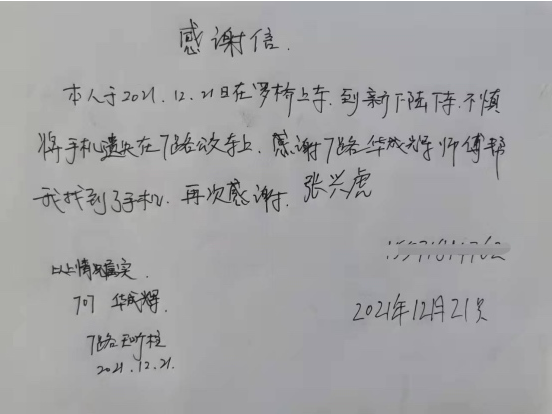 感谢信.
本人于2021.12.21日在罗桥上车.到新下陆下车.不慎
将手机遗失在7路公交车上.感谢7路华成辉师傅帮
我找到了手机.再次感谢.张兴虎
2021年12月21日
以上情况属实.
707 华成辉.
7路
2021.12.21.